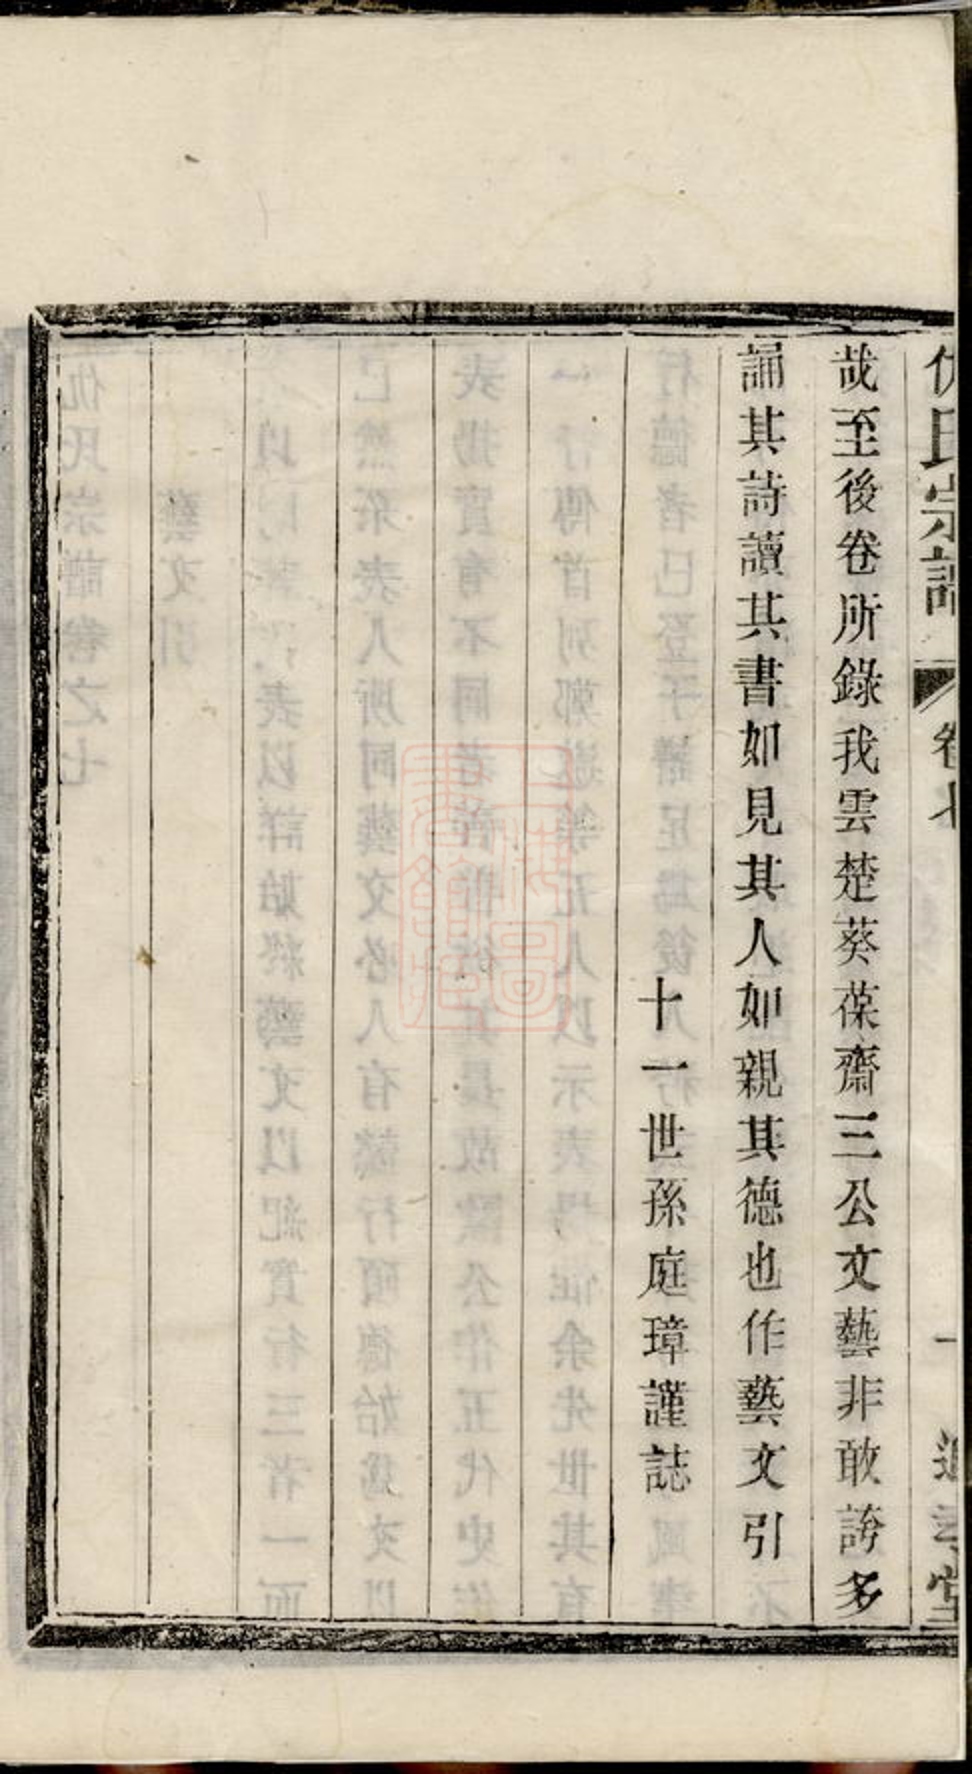 仇氏宗譜 卷七 一 追孝堂
哉至後卷所錄我雲楚葵葆齋三公文藝非敢誇多
誦其詩讀其書如見其人如親其德也作藝文引
十一世孫庭璋謹誌
上海圖書館藏